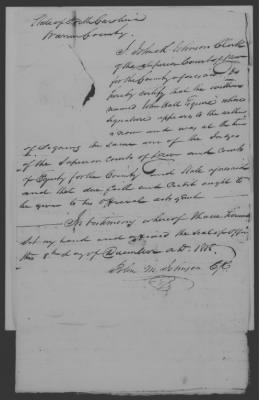 State of North Carolina
Warren County
I John M Johnson Clerk
of the Superior Court of Law
for the County aforesaid do
hereby certify that the within
named John Hall Esquire whose
signature appears to the within
is now and was at the time
of signing the same one of the Judges
of the Superior Courts of Law and Courts
of Equity for the County and State aforesaid
and that due faith and Credit ought to
be given to his official acts
In testimony whereof I have hereunto
set my hand and affixed the seal of office
this 8th day of December AD 18
John M. Johnson Clk